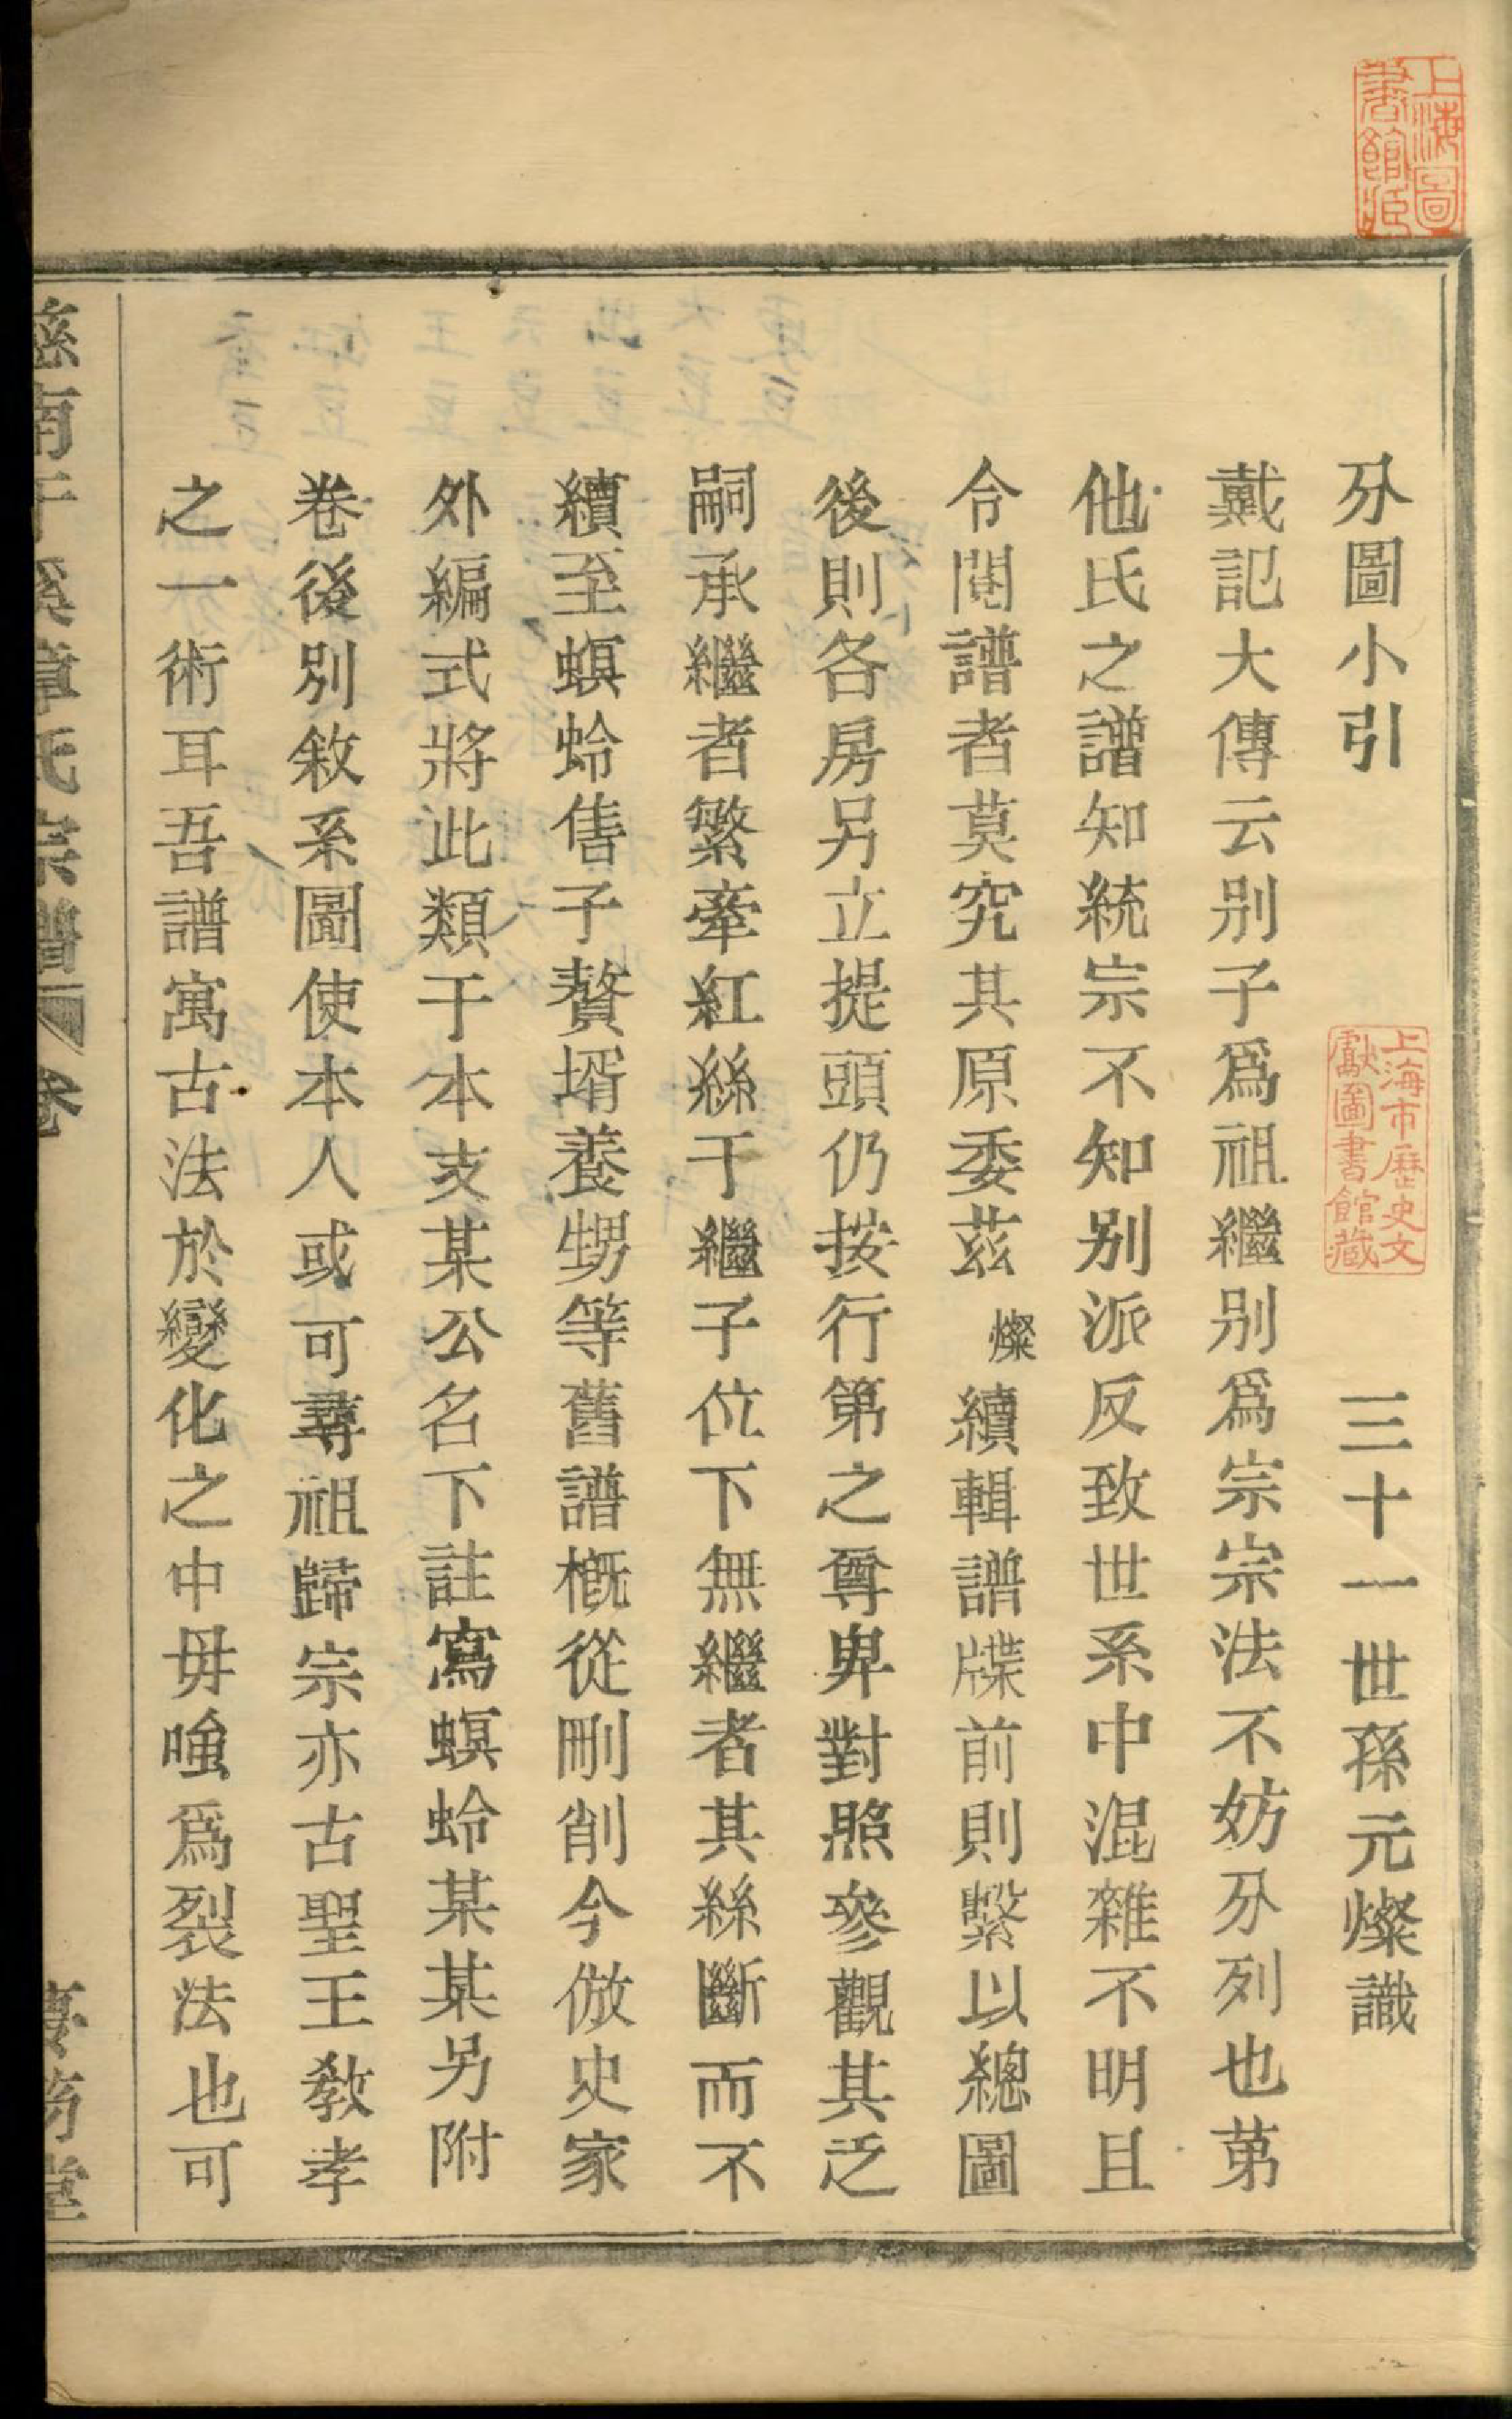 上海圖書館藏
上海市歷史文獻圖書館藏
分圖小引　三十一世孫元燦識
戴記大傳云別子爲祖繼別爲宗宗法不妨分列也苐
他氏之譜知統宗不知別派反致世系中混雜不明且
令閱譜者莫究其原委茲燦續輯譜牒前則繫以總圖
後則各房另立提頭仍按行第之尊卑對照參觀其乏
嗣承繼者繁牽紅絲于繼子位下無繼者其絲斷而不
續至螟蛉售子贅壻養甥等舊譜槪從刪削今倣史家
外編式將此類于本支某公名下註寫螟蛉某某另附
卷後別敘系圖使本人或可尋祖歸宗亦古聖王敎孝
之一術耳吾譜寓古法於變化之中毋嗤爲裂法也可
慈南干溪章氏宗譜　卷